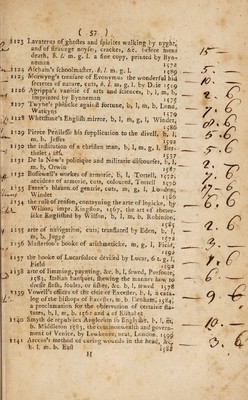 ( 57 )
1123 Lavaterus of ghostes and spirites walking by nyght,
and of straunge noyses, crackes, &c. before mens
death, b. l. m. g. l. a fine copy, printed by Byn-
neman 1572 15 —
1124 Aſcham's ſchoolmaſter, b. l. m. g. l. 1589 5 —
1125 Morwyng's treaſure of Evonymus the wonderful hid
ſecretes of nature, cuts, b. l. m. g. l. by Daie 1559 10. —
1126 Agrippa's vanitie of arts and ſciences, b, l, m, b,
imprinted by Bynneman 1575 2. 6
1127 Twyne's phiſicke againſt fortune, b, l, m, b, Lond,
Watkyns 1579 7. 6
1128 Whetſtone's Engliſh mirror, b, l, m, g, l, Winder,
1586 8. 6
1129 Pierce Penileſſe his ſupplication to the divell, b. l.
m. b. Jeffes 1592 5. 6
1130 the inſtitution of a chriſten man, b, l, m, g, l, Bar-
thelet 1
1131 De la Nowe's politique and militarie diſcourſes, b, l,
m. b, Orwin 1587 2. 6
1132 Boſſewell's workes of armorie, b, l, Tottell, 1572,
accidens of armorie, cuts, coloured, Tottell
1133 Ferne's blazon of gentrie, cuts, m, g, l, London,
Winder 1586
1134 the rule of reaſon, conteyning the arte of logicke, by
Wilſon, impr. Kingſton, 1567, the art of rheto-
ricke Engliſhed by Wilſon, b, l, m, b, Robinſon,
1135 arte of navigation, cuts, tranſlated by Eden, b, l,
m, b, Jugge 1572 2. 6
1136 Maſterſon's booke of arithmeticke, m, g, l, Field,
1592 3. —
1137 the booke of Lucarſolace deviſed by Lucar, 6 t. g. l,
Field 1590 1. 6
1138 arte of limming, payntyng, &c. b, l, ſewed, Purfoote,
1583, Italian banquet, ſhewing the manner how to
dreſſe fleſh, foules, or fiſhes, &c. b, l, ſewed 6. —
1139 Vowell's offices of the citie of Exceſter, b, l, a cata-
log of the biſhops of Exceſter, m, b. Denham, 1584,
a proclamation for the obſervation of certaine ſta-
tutes, b, l, m, b, 1562 and 4 of Elizabet 9. 6
1140 Smyth de republica Anglorum in Engliſhe, b, l, &c.
b. Middleton 1583, the commonwealth and govern-
ment of Venice, by Lewkenor, neat, London, 1599 10. —
1141 Arceus's method of curing wounds in the head, &c.
b. l. m. b. Eaſt 1588 3. 6
H